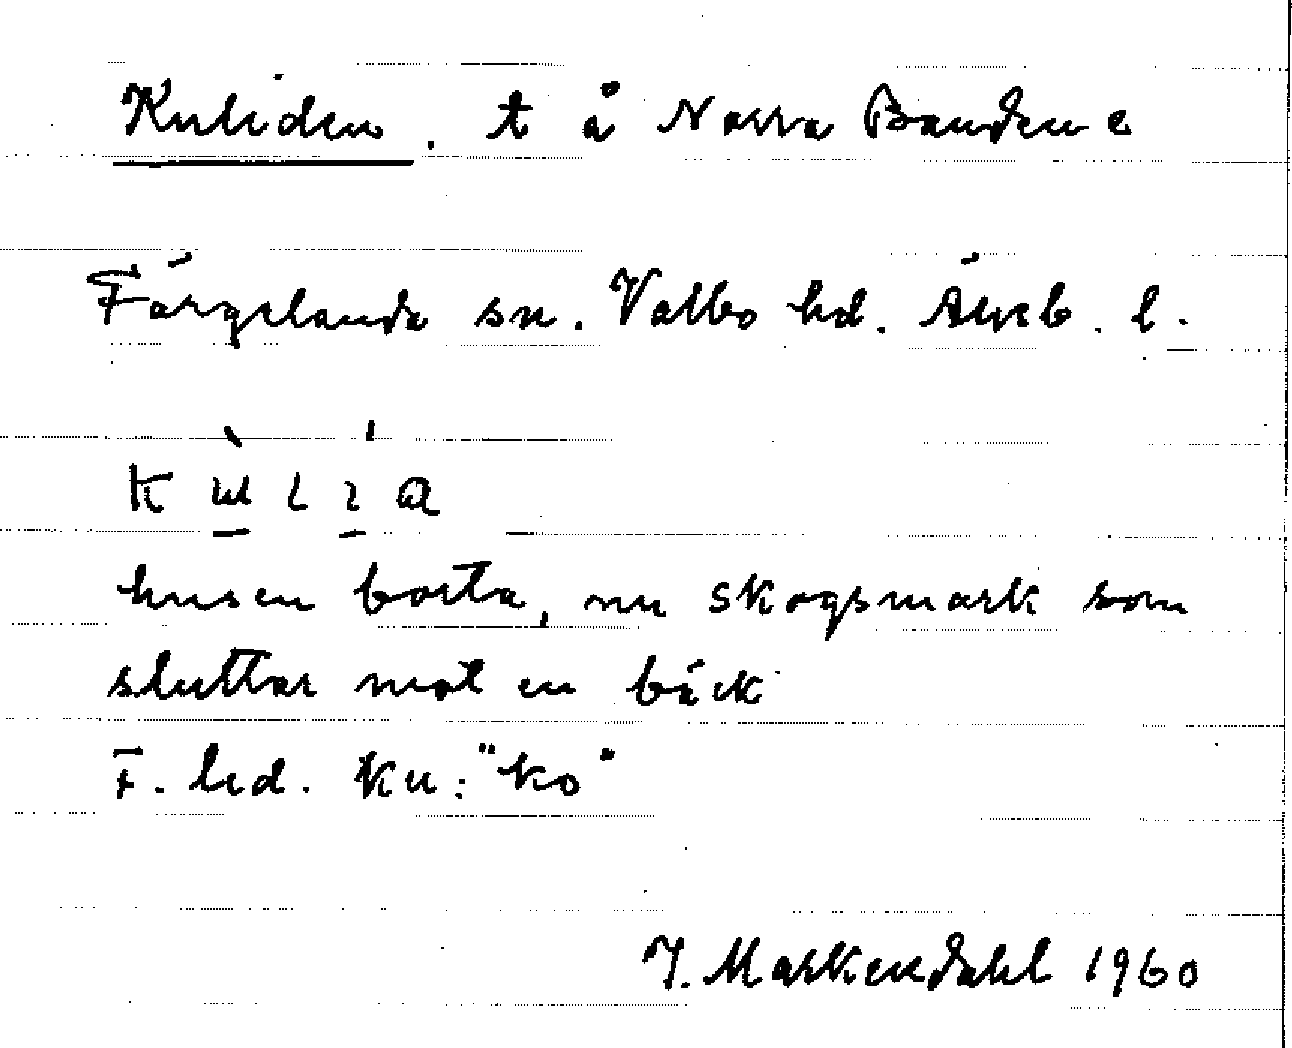 Kuliden. t å Norra Bandene
Färgelanda sn. Valbo hd. Älvsb. l.
kùlía
husen borta, nu skogsmark som
sluttar mot en bäck
F. led. ku: "ko"
J. Markendahl 1960